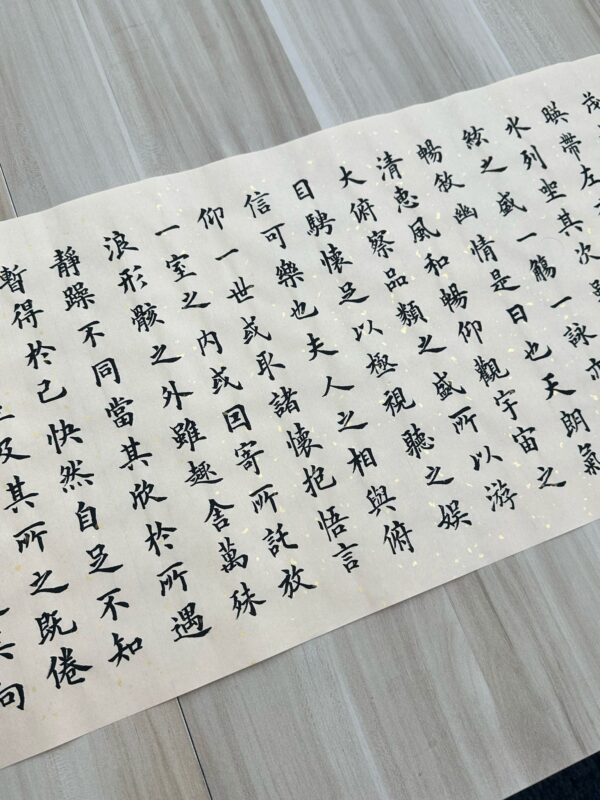 茂
暎帶左
水列坐其次雖
絃之盛一觴一詠亦
暢敘幽情是日也天朗氣
清惠風和暢仰觀宇宙之
大俯察品類之盛所以游
目騁懷足以極視聽之娛
信可樂也夫人之相與俯
仰一世或取諸懷抱悟言
一室之內或因寄所託放
浪形骸之外雖趣舍萬殊
靜躁不同當其欣於所遇
暫得於己快然自足不知
及其所之既倦
向